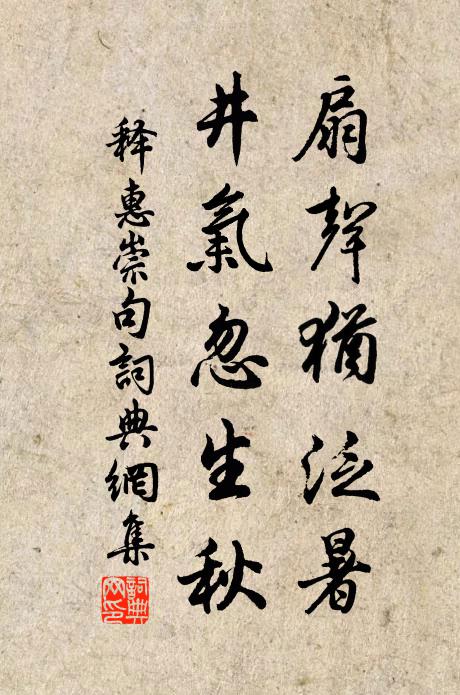 扇聲猶泛暑
井氣忽生秋
释惠崇句詞典網集
詞典网印